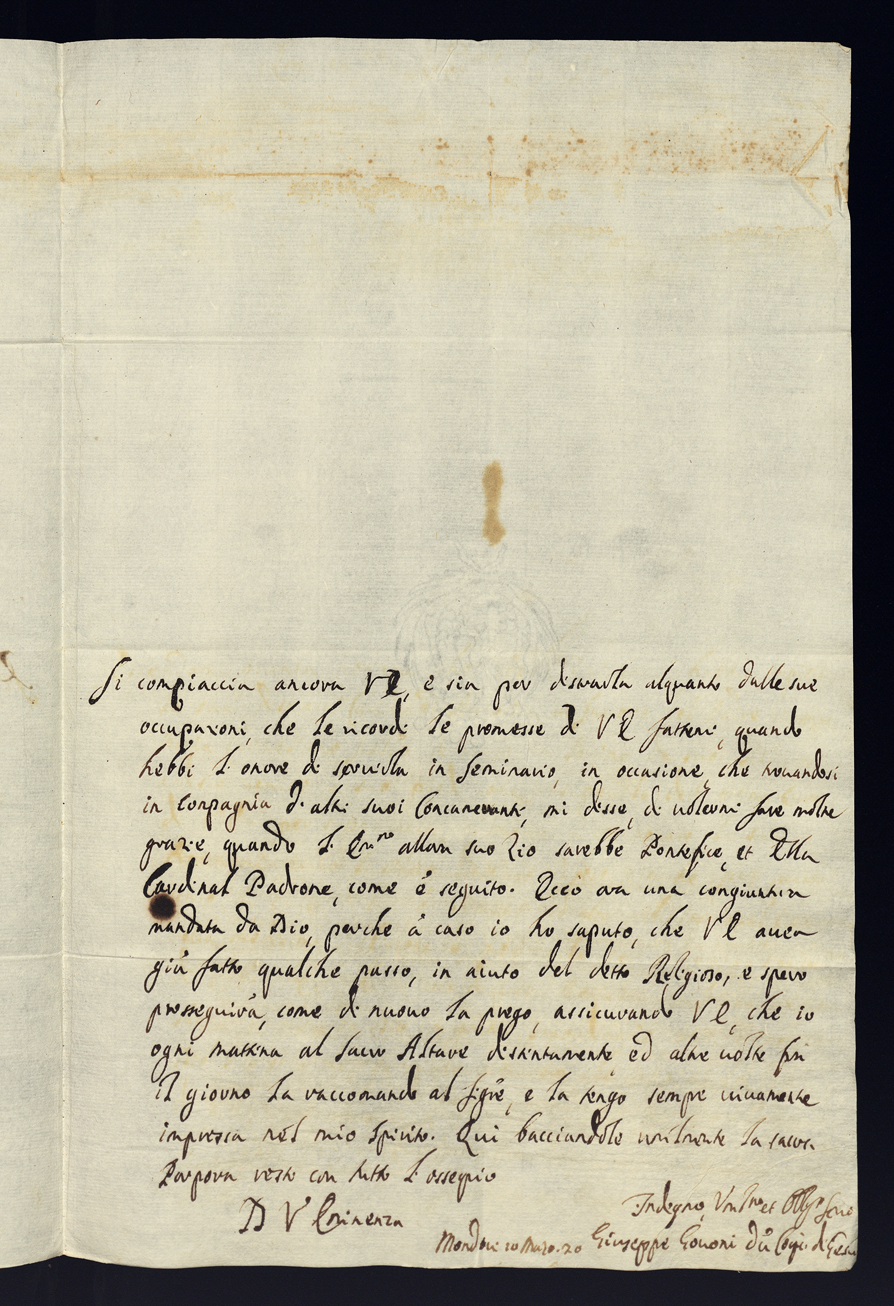 Si compiaccia ancora V E, e sia per disviarla alquanto dalle sue
occupazioni, che le ricordi le promesse di V E fattemi, quando
hebbi l'onore di servirla in Seminario, in occasione, che trovandosi
in Conpagnia di altri suoi Concameranti, mi disse, di volermi fare molte
grazie, quando l'Em.mo allora suo Zio sarebbe Pontefice, et Ella
Cardinal Padrone, come è seguito. Ecco ora una congiuntura
mandata da Dio, perche à caso io ho saputo, che V E avea
già fatto qualche passo, in aiuto del detto Religioso, e spero
proseguirà, come di nuovo la prego, assicurando V E, che io
ogni mattina al Sacro Altare distintamente, ed altre volte fra
il giorno la raccomando al Sig.re, e la tengo sempre vivamente
impressa nel mio Spirito. Qui bacciandole umilmente la sacra
Porpora resto con tutto l'ossequio
D V Eminenza
Indegno, Um.mo et Obb.mo Servo
Mondovi 10 Marzo. 20 Giuseppe Gononi d.a Comp. di Gesù